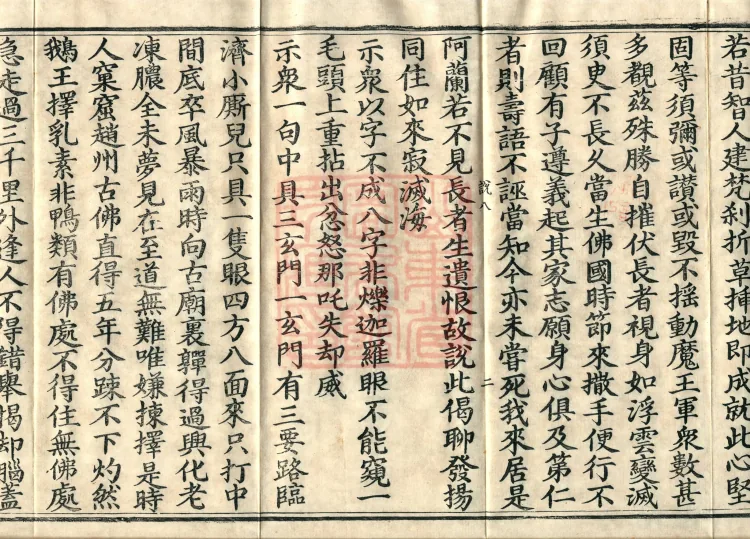 若昔智人建梵刹折草揷地即成就此心堅
固等須彌或讚或毀不揺動魔王軍衆數甚
多觀茲殊勝自摧伏長者視身如浮雲變滅
須臾不長久當生佛國時節來撒手便行不
回顧有子遵義起其家志願身心俱及第仁
者則壽語不誣當知今亦未甞死我來居是
阿蘭若不見長者生遺恨故說此偈聊發揚
同住如來寂滅海
示衆以字不成八字非爍迦羅眼不能窺一
毛頭上重拈出忿怒那吒失却威
示衆一句中具三玄門一玄門有三要路臨
濟小厮兒只具一隻眼四方八面來只打中
間底卒風暴雨時向古廟裏嚲得過興化老
凍膿全未夢見在至道無難唯嫌揀擇是時
人窠窟趙州古佛直得五年分踈不下灼然
鵝王擇乳素非鴨類有佛處不得住無佛處
急走過三千里外逢人不得錯舉揭却腦蓋
說八
二